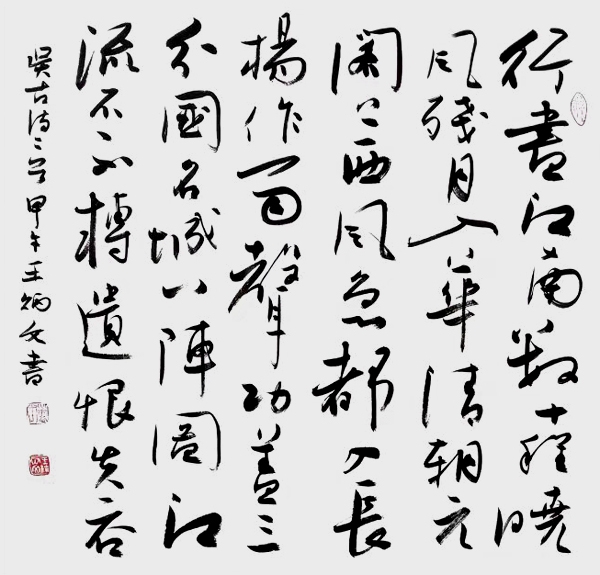 行盡江南數十程曉
风殘月入華清朝元
閣上西风急都入長
楊作雨聲功蓋三
分國名城八陣圖江
流石不轉遺恨失吞
吳古詩二首甲午王炳文書